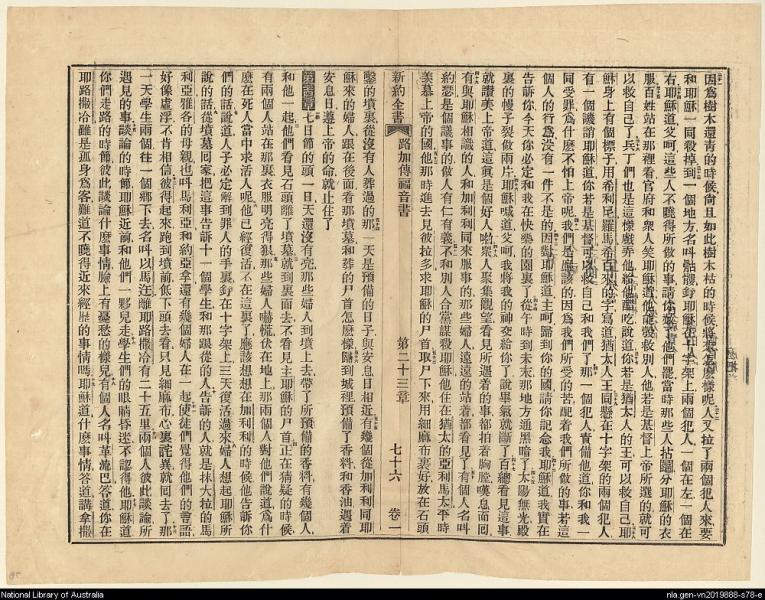 因爲樹木還青的時候尙且如此樹木枯的時候將來怎麽樣呢人又拉了兩個犯人來要
和耶穌一同殺掉到一個地方名叫骷髏釘耶穌在十字架上兩個犯人一個在左一個在
右耶穌道父呵這些人不曉得所做的事請你饒了他們罷當時那些人拈鬮分耶穌的衣
服百姓站在那裡看官府和衆人笑耶穌道他能救別人他若是基督上帝所選的就可
以救自己了兵丁們也是這樣戲弄他給他醋吃說道你若是猶太人的王可以救自己耶
穌身上有個標子用希利尼羅馬希伯來的字寫道猶太人王同懸在十字架的兩個犯人
有一個譏誚耶穌道你若是基督可以救自己和我們了那一個犯人責備他道你和我一
同受罪爲什麽不怕上帝呢我們是應該的因爲我們所受的苦配着我們所做的事若這
個人的行爲沒有一件不是的因對耶穌道主呵歸到你的國請你記念我耶穌道我實在
告訴你今天你必定和我在快樂的園裏了從午時到未末那地方通黑暗了太陽無光殿
裏的幔子裂做兩片耶穌喊道父呵我將我的神交給你了說畢氣就斷了百總看見這事
就讚美上帝道這眞是個好人喲衆人聚集觀望看見所遇着的事都拍着胸膛嘆息而回
有與耶穌相識的人和加利利同來服事的那些婦人遠遠的站着都看見了有個人名叫
約瑟是個議事的做人有仁有義不和別人合黨謀殺耶穌他住在猶太的亞利馬太平時
羡慕上帝的國他那時進去見彼拉多求耶穌的尸首取尸下來用細麻布裹好放在石頭
新約全書 路加傳福音書 第二十三章 七十六 卷一
鑿的墳裏從沒有人葬過的那一天是預備的日子與安息日相近有幾個從加利利同耶
穌來的婦人跟在後面看那墳墓和葬的尸首怎麽樣歸到城裡預備了香料和香油遇着
安息日遵上帝的命就止住了
七日節的頭一日天還沒有亮那些婦人到墳上去帶了所預備的香料有幾個人
和他一起他們看見石頭離了墳墓就到裏面去不看見主耶穌的尸首正在猜疑的時候
有兩個人站在那裏衣服明亮得狠那些婦人嚇慌伏在地上那兩個人對他們說道爲什
麽在死人當中求活人呢他已經復活不在這裏了應該想想在加利利的時候他告訴你
們的話說道人子必定解到罪人的手裏釘在十字架上三天復活過來婦人想起耶穌所
說的話從墳墓回家把這事告訴十一個學生和那跟從的人告訴的人就是抹大拉的馬
利亞雅各的母親也叫馬利亞和約亞拿還有幾個婦人在一起使徒們覺得他們的言語
好像虛浮不肯相信彼得起來跑到墳前低下頭去看只見細麻布心裏詫異就回去了那
一天學生兩個往一個鄉下去名叫以馬迕離耶路撒冷有二十五里兩個人彼此談論所
遇見的事談論的時節耶穌近前和他們一夥兒走學生們的眼睛昏迷不認得他耶穌道
你們走路的時節彼此談論什麽事情臉上有憂愁的樣兒有個人名叫革流巴答道你在
耶路撒冷雖是孤身爲客難道不曉得近來經歷的事情嗎耶穌道什麽事情答道講拿撒
National Library of Australia
nla.gen-vn2019888-s78-e